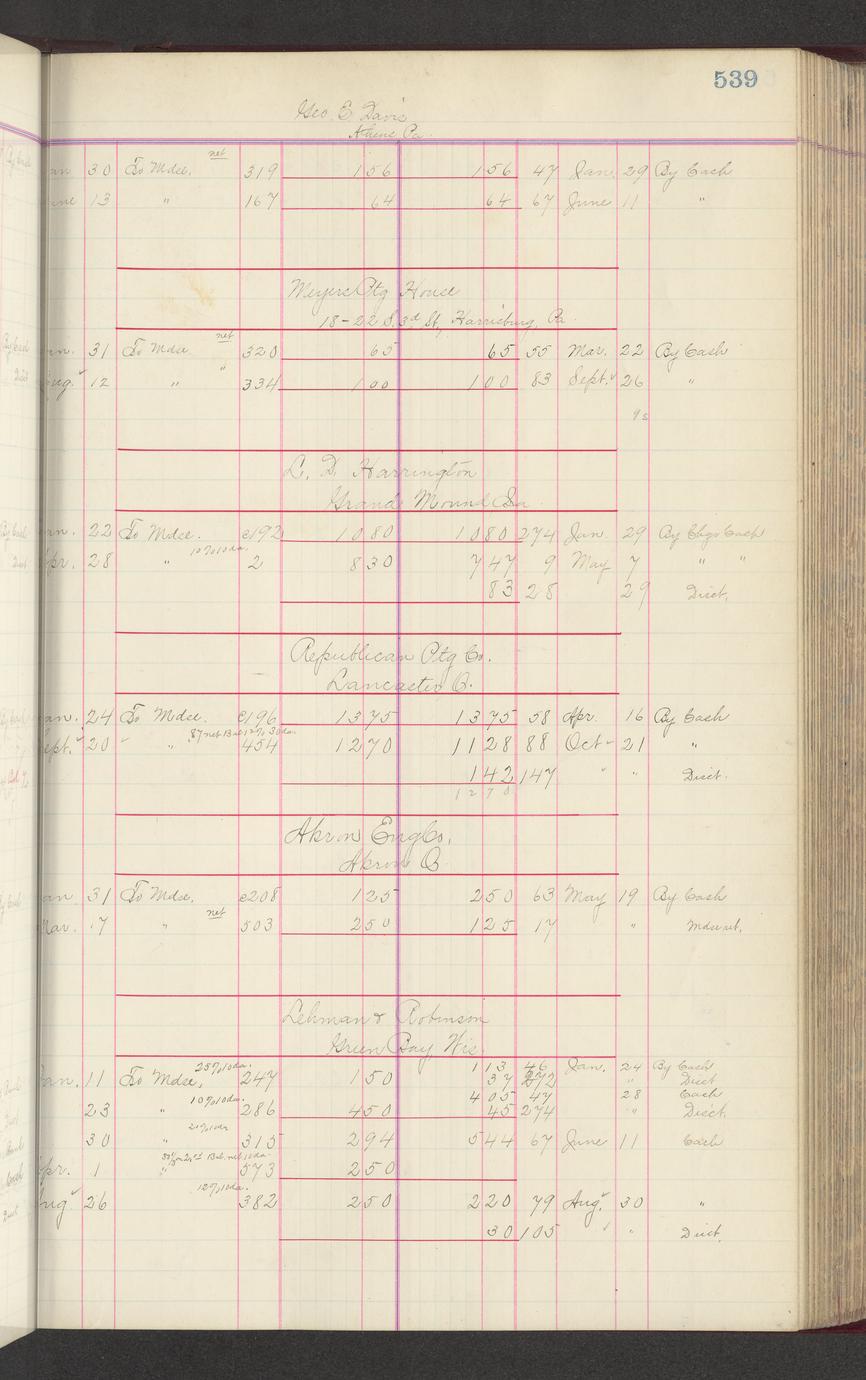 539
Geo. E. Davis
Athens Pa.
an 30 To Mdse. net 319 156 156 47 Jan. 29 By Cash
une 13 " 167 64 64 67 June 11 "
Meyers Ptg House
18-22 S. 3rd St, Harrisburg, Pa.
an. 31 To Mdse net 320 65 65 55 Mar. 22 By Cash
ug. 12 " " 334 100 100 83 Sept. 26 "
L. D. Harrington
Grand Mound Ia
an. 22 To Mdse. c192 1080 1080 274 Jan. 29 By Chgo Cash
pr. 28 " 10% 10 da. 2 830 747 9 May 7 " "
83 28 29 Disct.
Republican Ptg Co.
Lancaster O.
an. 24 To Mdse. c196 1375 1375 58 Apr. 16 By Cash
ept. 20 " 454 1270 1128 88 Oct 21 "
142 147 " " Disct.
1270
Akron Eng Co,
Akron O
an 31 To Mdse, c208 125 250 63 May 19 By Cash
Mar. 17 " net 503 250 125 17 " Mdse ret.
Lehman & Robinson
Green Bay, Wis
an. 11 To Mdse, 25% 10 da. 247 150 113 46 Jan. 24 By Cash
37 272 " Disct
23 " 10% 10 da. 286 450 405 47 28 Cash
45 274 " Disct.
30 " 315 294 544 67 June 11 Cash
pr. 1 " 573 250
ug 26 12% 10 da. 382 250 220 79 Aug. 30 "
30 105 " Disct.